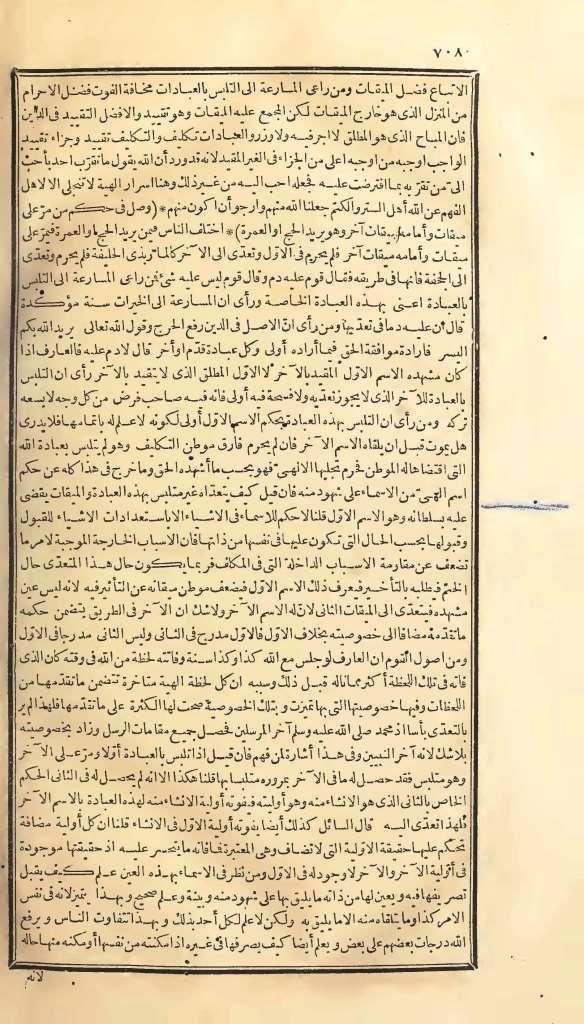 ٧٠٨
الاتباع فضل الميقات ومن راعى المسارعة الى التلبس بالعبادات مخافة الفوت فضل الاحرام
من المنزل الذى هو خارج الميقات لكن المجمع عليه الميقات وهو تقييد والافضل التقييد فى الدين
فان المباح الذى هو المطلق لا اجر فيه ولا وزر والعبادات تكليف والتكليف تقييد وجزاء تقييد
الواجب اوجبه من اوجبه اعلى من الجزاء فى الغير المقيد لانه قد ورد أن الله يقول ما تقرّب احد بأحبّ
الىّ من تقرّبه بما افترضت عليه فجعله احب اليه من غير ذلك وهنا اسرار الهية لا تنجلى الا لاهل
الفهم عن الله أهل الستر والكتم جعلنا الله منهم وارجو أن اكون منهم * (وصل فى حكم من مرّ على
ميقات وأمامه ميقات آخر وهو يريد الحج او العمرة) * اختلف الناس فيمن يريد الحج او العمرة فيمرّ على
ميقات وأمامه ميقات آخر فلم يحرم فى الاوّل وتعدّى الى الآخر كالمارّ بذى الحليفة فلم يحرم وتعدّى
الى الجحفة فانها فى طريقه فقال قوم عليه دم وقال قوم ليس عليه شئ فمن راعى المسارعة الى التلبس
بالعبادة اعنى بهذه العبادة الخاصة ورأى ان المسارعة الى الخيرات سنة مؤكدة
قال ان عليه دما فى تعدّيها ومن رأى انّ الاصل فى الدين رفع الحرج وقول الله تعالى يريد الله بكم
اليسر فارادة موافقة الحق فيما أراده أولى وكل عبادة قدّم او أخر قال لا دم عليه فالعارف اذا
كان مشهده الاسم الاوّل المقيد بالآخر لا الاوّل المطلق الذى لا يتقيد بالآخر رأى ان التلبس
بالعبادة للآخر الذى لا يجوز تعدّيه ولا فسحة فيه أولى فانه فيه صاحب فرض من كل وجه لا يسعه
تركه ومن رأى ان التلبس بهذه العبادة بحكم الاسم الاوّل أولى لكونه لا علم له باتمامها فلا يدرى
هل يموت قبل ان يلقاه الاسم الآخر فان لم يحرم فارق موطن التكليف وهو لم يتلبس بعبادة الله
التى اقتضاها له الموطن فحرم تجليها الالهىّ فهو بحسب ما أشهده الحق وما خرج فى هذا كله عن حكم
اسم الهىّ من الاسماء على شهود منه فان قيل كيف يتعدّاه غير متلبس بهذه العبادة والميقات يقضى
عليه بسلطانه وهو الاسم الاوّل قلنا لا حكم للاسماء فى الاشياء الا باستعدادات الاشياء للقبول
وقبولها بحسب الحال التى تكون عليها فى نفسها من ذاتها فان الاسباب الخارجة الموجبة لامر ما
تضعف عن مقاومة الاسباب الداخلة التى فى المكلف فربما يكون حال هذا المتعدّى حال
الختم فيطلبه بالتأخير فيعرف ذلك الاسم الاوّل فيضعف موطن ميقاته عن التأثير فيه لانه ليس عين
مشهده فيتعدّى الى الميقات الثانى لانّ له الاسم الآخر ولا شك ان الآخر فى الطريق يتضمن حكمه
ما تقدّمه مضافا الى خصوصيته بخلاف الاوّل فالاوّل مدرج فى الثانى وليس الثانى مدرجا فى الاوّل
ومن اصول القوم ان العارف لو جلس مع الله كذا وكذا سنة وفاتته لحظة من الله فى وقته كان الذى
فاته فى تلك اللحظة أكثر مما ناله قبل ذلك وسببه ان كل لحظة الهية متاخرة تتضمن ما تقدّمها من
اللحظات وفيها خصوصيتها التى بها تميزت وبتلك الخصوصية صحت لها الكثرة على ما تقدّمها فلهذا لم ير
بالتعدّى بأسا اذ محمد صلى الله عليه وسلم آخر المرسلين فحصل جميع مقامات الرسل وزاد بخصوصيته
بلا شك لانه آخر النبيين وفى هذا أشارة لمن فهم فان قيل اذا تلبس بالعبادة أوّلا ومرّ على الآخر
وهو متلبس فقد حصل له ما فى الآخر بمروره متلبسا بها قلنا هكذا الا انه لم يحصل له فى الثانى الحكم
الخاص بالثانى الذى هو الانشاء منه وهو أوليته فيفوته أولية الانشاء منه لهذه العبادة بالاسم الآخر
فلهذا تعدّى اليه قال السائل كذلك أيضا يفوته أولية الاوّل فى الانشاء قلنا ان كل أولية مضافة
تحكم عليها حقيقة الاولية التى لا تضاف وهى المعتبرة فما فاته ما يتحسر عليه اذ حقيقتها موجودة
فى أوّلية الآخر والآخر لا وجود له فى الاوّل ومن نظر فى الاسماء بهذه العين علم كيف يقبل
تصريفها فيه ويعين لها من ذاته ما يليق بها على شهود منه وبينة وعلم صحيح وبهذا يتميز لانه فى نفس
الامر كذا وما يتلقاه منه الا ما يليق به ولكن لا علم لكل أحد بذلك وبهذا تتفاوت الناس ويرفع
الله درجات بعضهم على بعض ويعلم أيضا كيف يصرفها فى غيره اذا مكنته من نفسها أو مكنه منها حاله
لانه